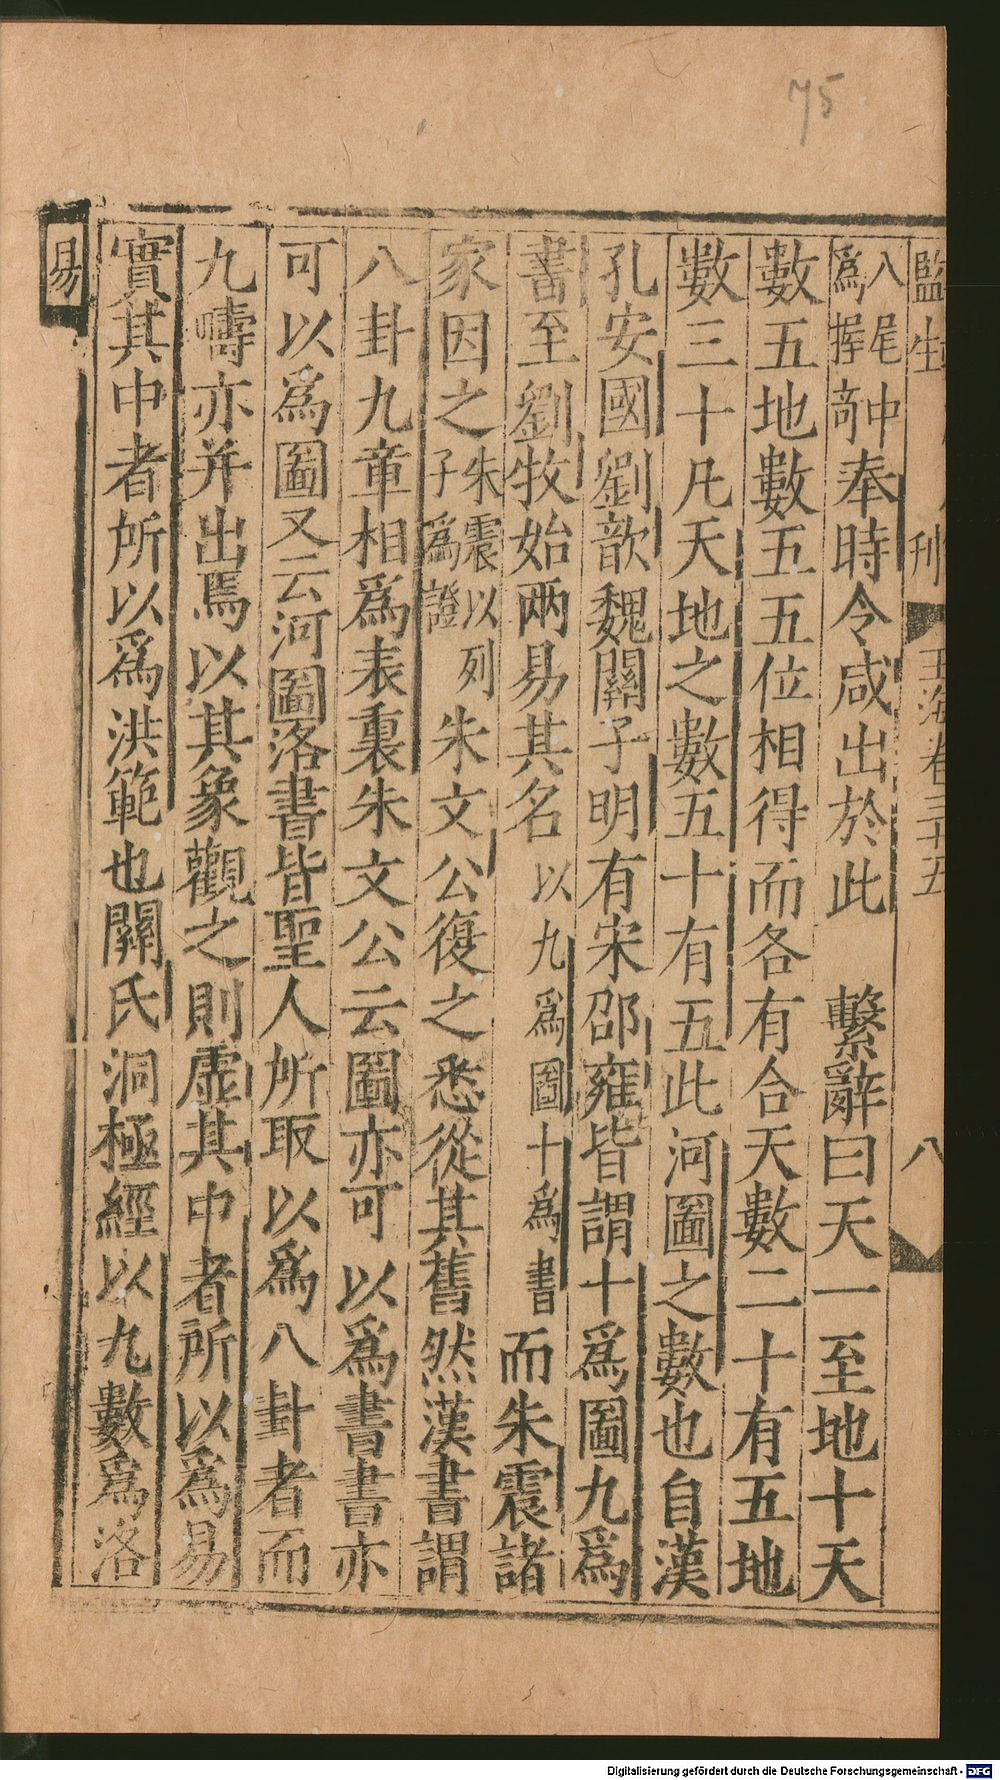 75
監生 刊 玉海卷三十五 八
八尾中
爲握奇奉時令咸出於此 繫辭曰天一至地十天
數五地數五五位相得而各有合天數二十有五地
數三十凡天地之數五十有五此河圖之數也自漢
孔安國劉歆魏關子明有宋邵雍皆謂十爲圖九爲
書至劉牧始兩易其名以九爲圖十爲書而朱震諸
家因之朱震以列子爲證朱文公復之悉從其舊然漢書謂
八卦九章相爲表裏朱文公云圖亦可以爲書書亦
可以爲圖又云河圖洛書皆聖人所取以爲八卦者而
九疇亦并出焉以其象觀之則虛其中者所以爲易
實其中者所以爲洪範也關氏洞極經以九數爲洛
易
Digitalisierung gefördert durch die Deutsche Forschungsgemeinschaft - DFG